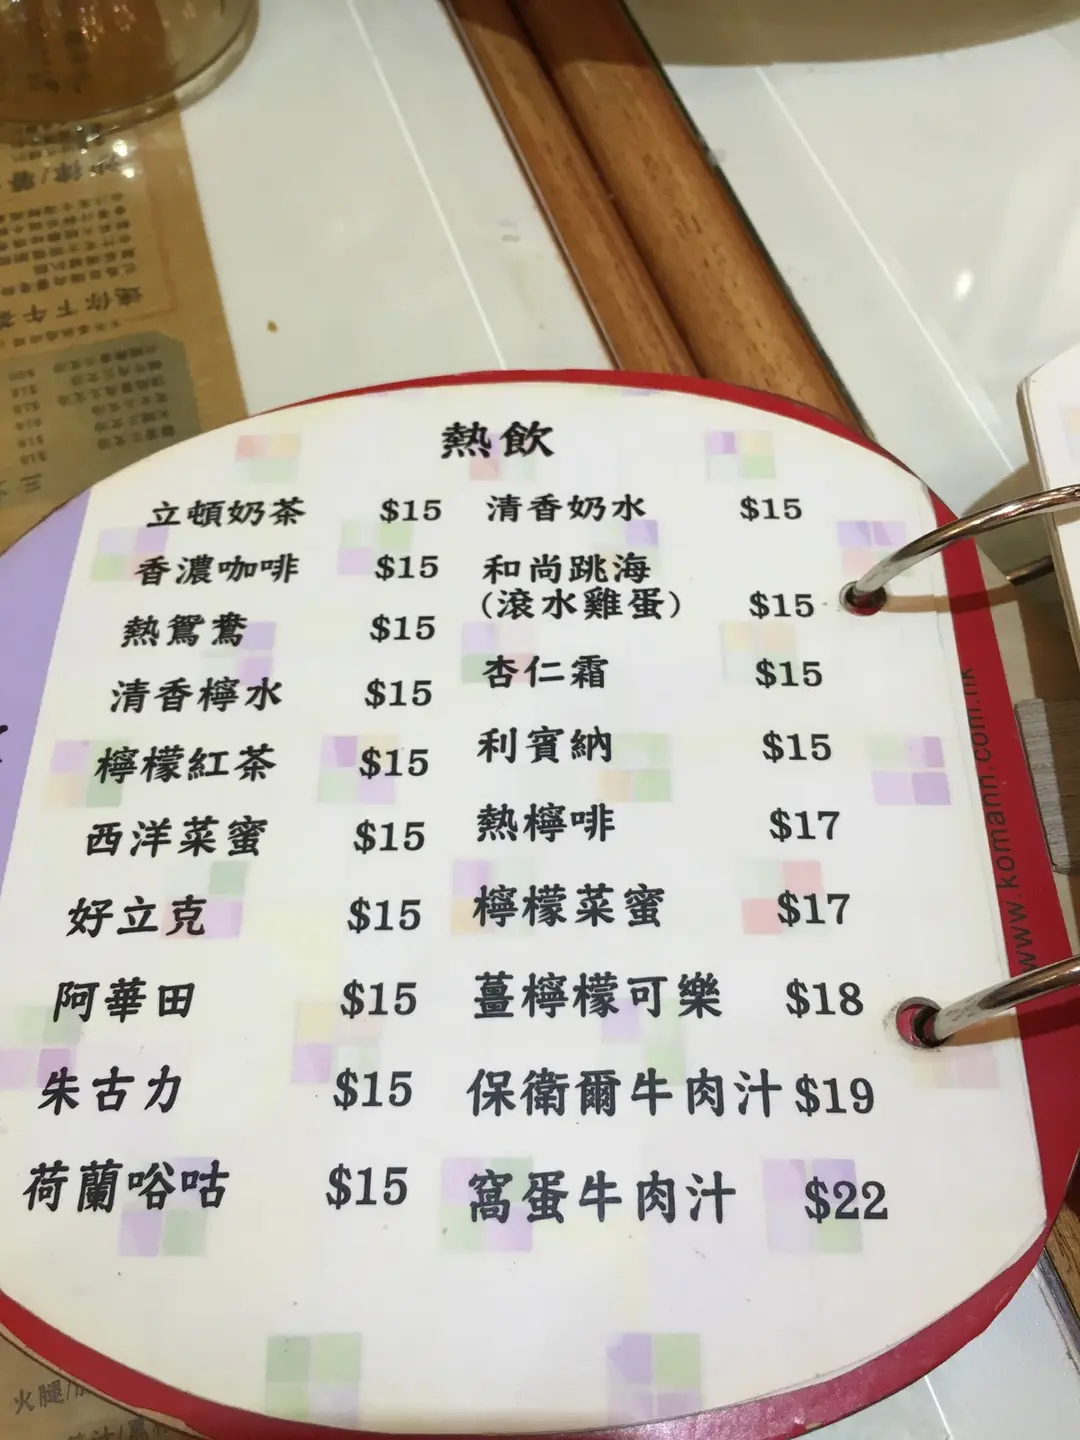 迷你下午茶
熱飲
立頓奶茶 $15
香濃咖啡 $15
熱鴛鴦 $15
清香檸水 $15
檸檬紅茶 $15
西洋菜蜜 $15
好立克 $15
阿華田 $15
朱古力 $15
荷蘭唂咕 $15
清香奶水 $15
和尚跳海
(滾水雞蛋) $15
杏仁霜 $15
利賓納 $15
熱檸啡 $17
檸檬菜蜜 $17
薑檸檬可樂 $18
保衛爾牛肉汁 $19
窩蛋牛肉汁 $22
www.komann.com.hk
火腿/